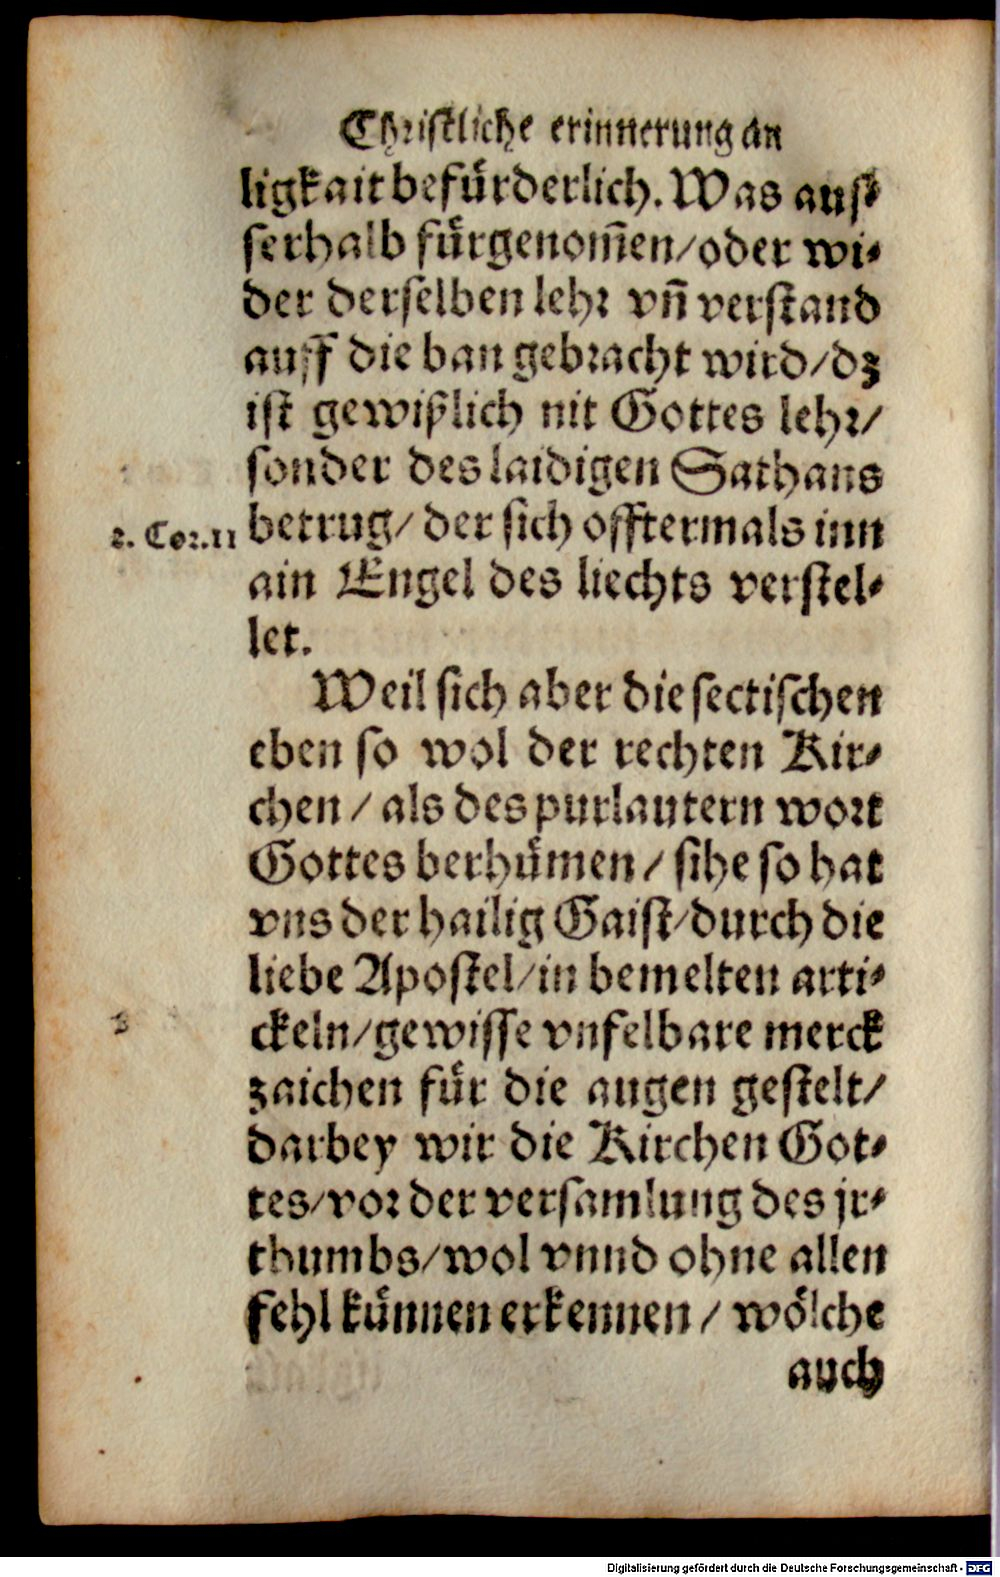 Chriſtliche erinnerung an
ligkait befuͤrderlich. Was auſ⸗
ſerhalb fuͤrgenom̃en/oder wi⸗
der derſelben lehꝛ vñ verſtand
auff die ban gebꝛacht wird/dz
iſt gewißlich nit Gottes lehꝛ/
ſonder des laidigen Sathans
2. Coꝛ.11
betrug/ der ſich offtermals inn
ain Engel des liechts verſtel⸗
let.
Weil ſich aber die ſectiſchen
eben ſo wol der rechten Kir⸗
chen / als des purlautern woꝛt
Gottes berhuͤmen / ſihe ſo hat
vns der hailig Gaiſt/durch die
liebe Apoſtel/in bemelten arti⸗
ckeln/gewiſſe vnfelbare merck
zaichen fuͤr die augen geſtelt/
darbey wir die Kirchen Got⸗
tes/voꝛ der verſamlung des jr⸗
thumbs/wol vnnd ohne allen
fehl kuͤnnen erkennen / woͤlche
auch
Digitalisierung gefördert durch die Deutsche Forschungsgemeinschaft - DFG